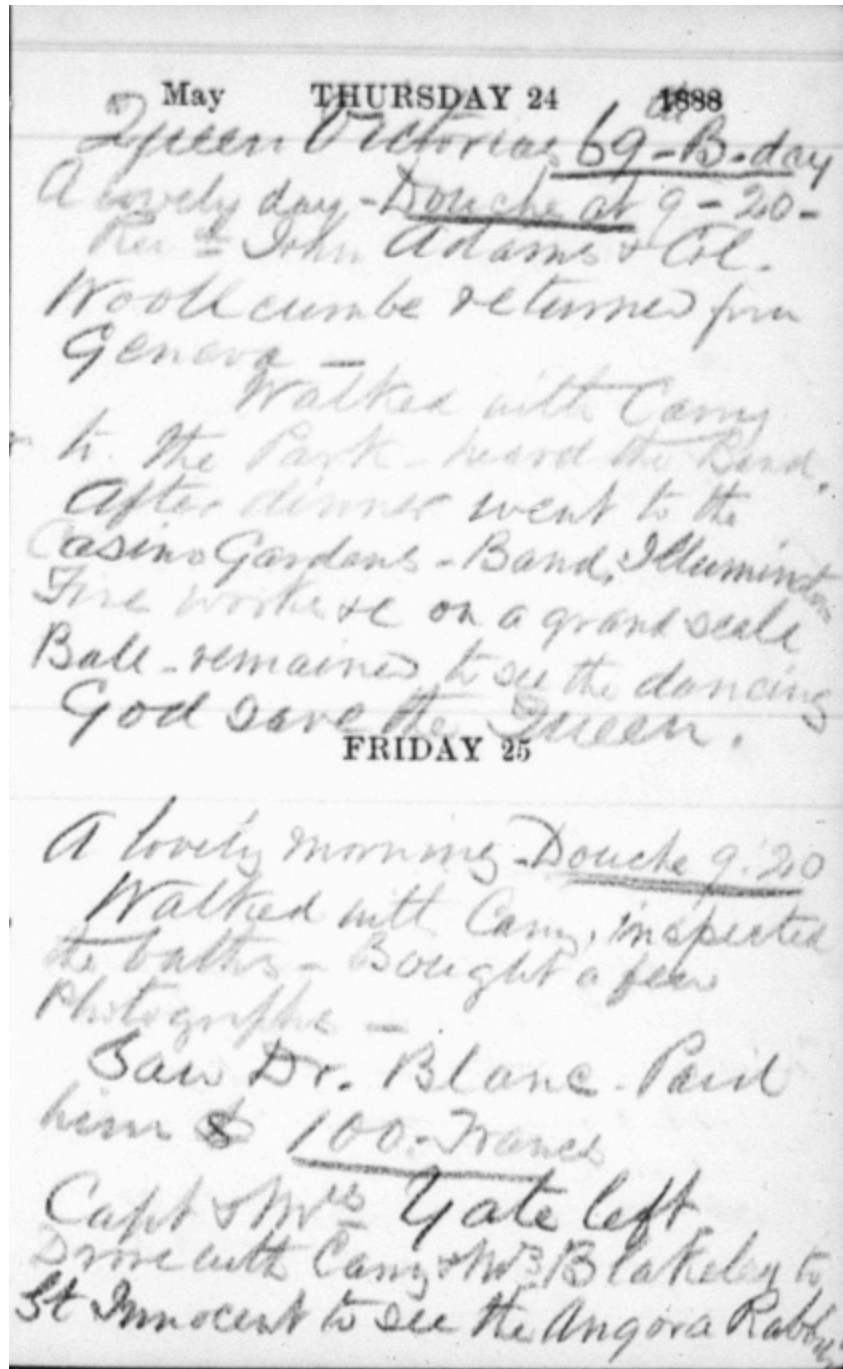 May THURSDAY 24 1888
Queen Victorias 69 - B - day
A lovely day - Douche at 9 - 20 -
Revd John Adams & Col.
Woollcumbe returned from
Geneva -
Walked with Carry
to the Park - heard the Band.
After dinner went to the
Casino Gardens - Band, Illumintns
Fire works &c on a grand scale
Ball - remained to see the dancing
God save the Queen.
FRIDAY 25
A lovely morning - Douche 9.20
Walked with Carry, inspected
the baths - Bought a few
Photographs -
Saw Dr. Blanc - Paid
him 100 - Francs
Capt & Mrs Yate left
Drove with Carry & Mrs Blakeley to
St Innocent to see the Angora Rabbits